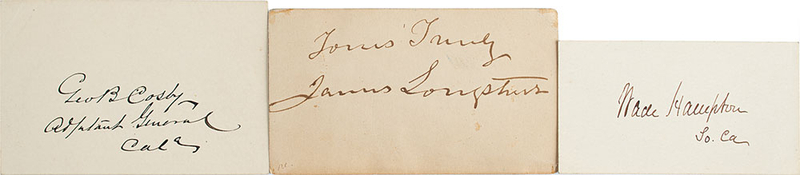 Geo B Cosby
Adjutant General
Cala
Yours Truly
James Longstreet
Wade Hampton
So. Ca